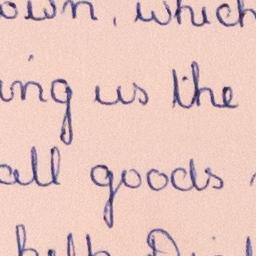 own, which
ing us the
all goods